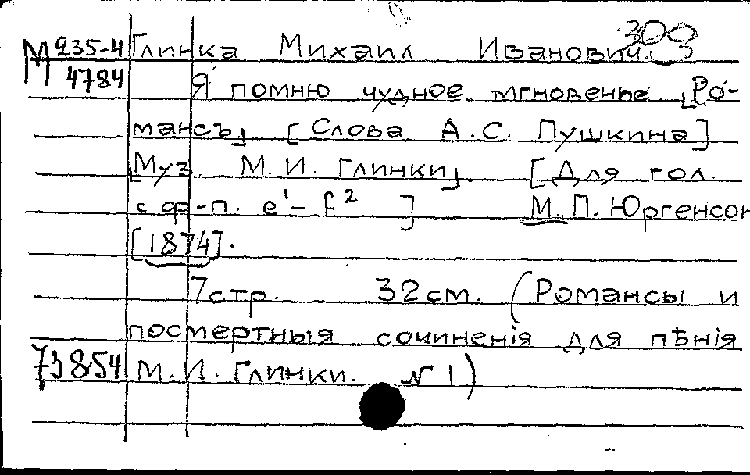 М 235-4 Глинка Михаил Иванович. 300
4784 Я помню чудное мгновенье ⌊Ро-
мансъ⌋ [Слова А.С. Пушкина]
⌊Муз. М.И. Глинки⌋. [Для гол.
с ф-п. e¹-f²] М. П. Юргенсон
[1874].
7 стр. 32 см. (Романсы и
посмертныя сочиненія для пѣнія
73854 М.И. Глинки. № 1)